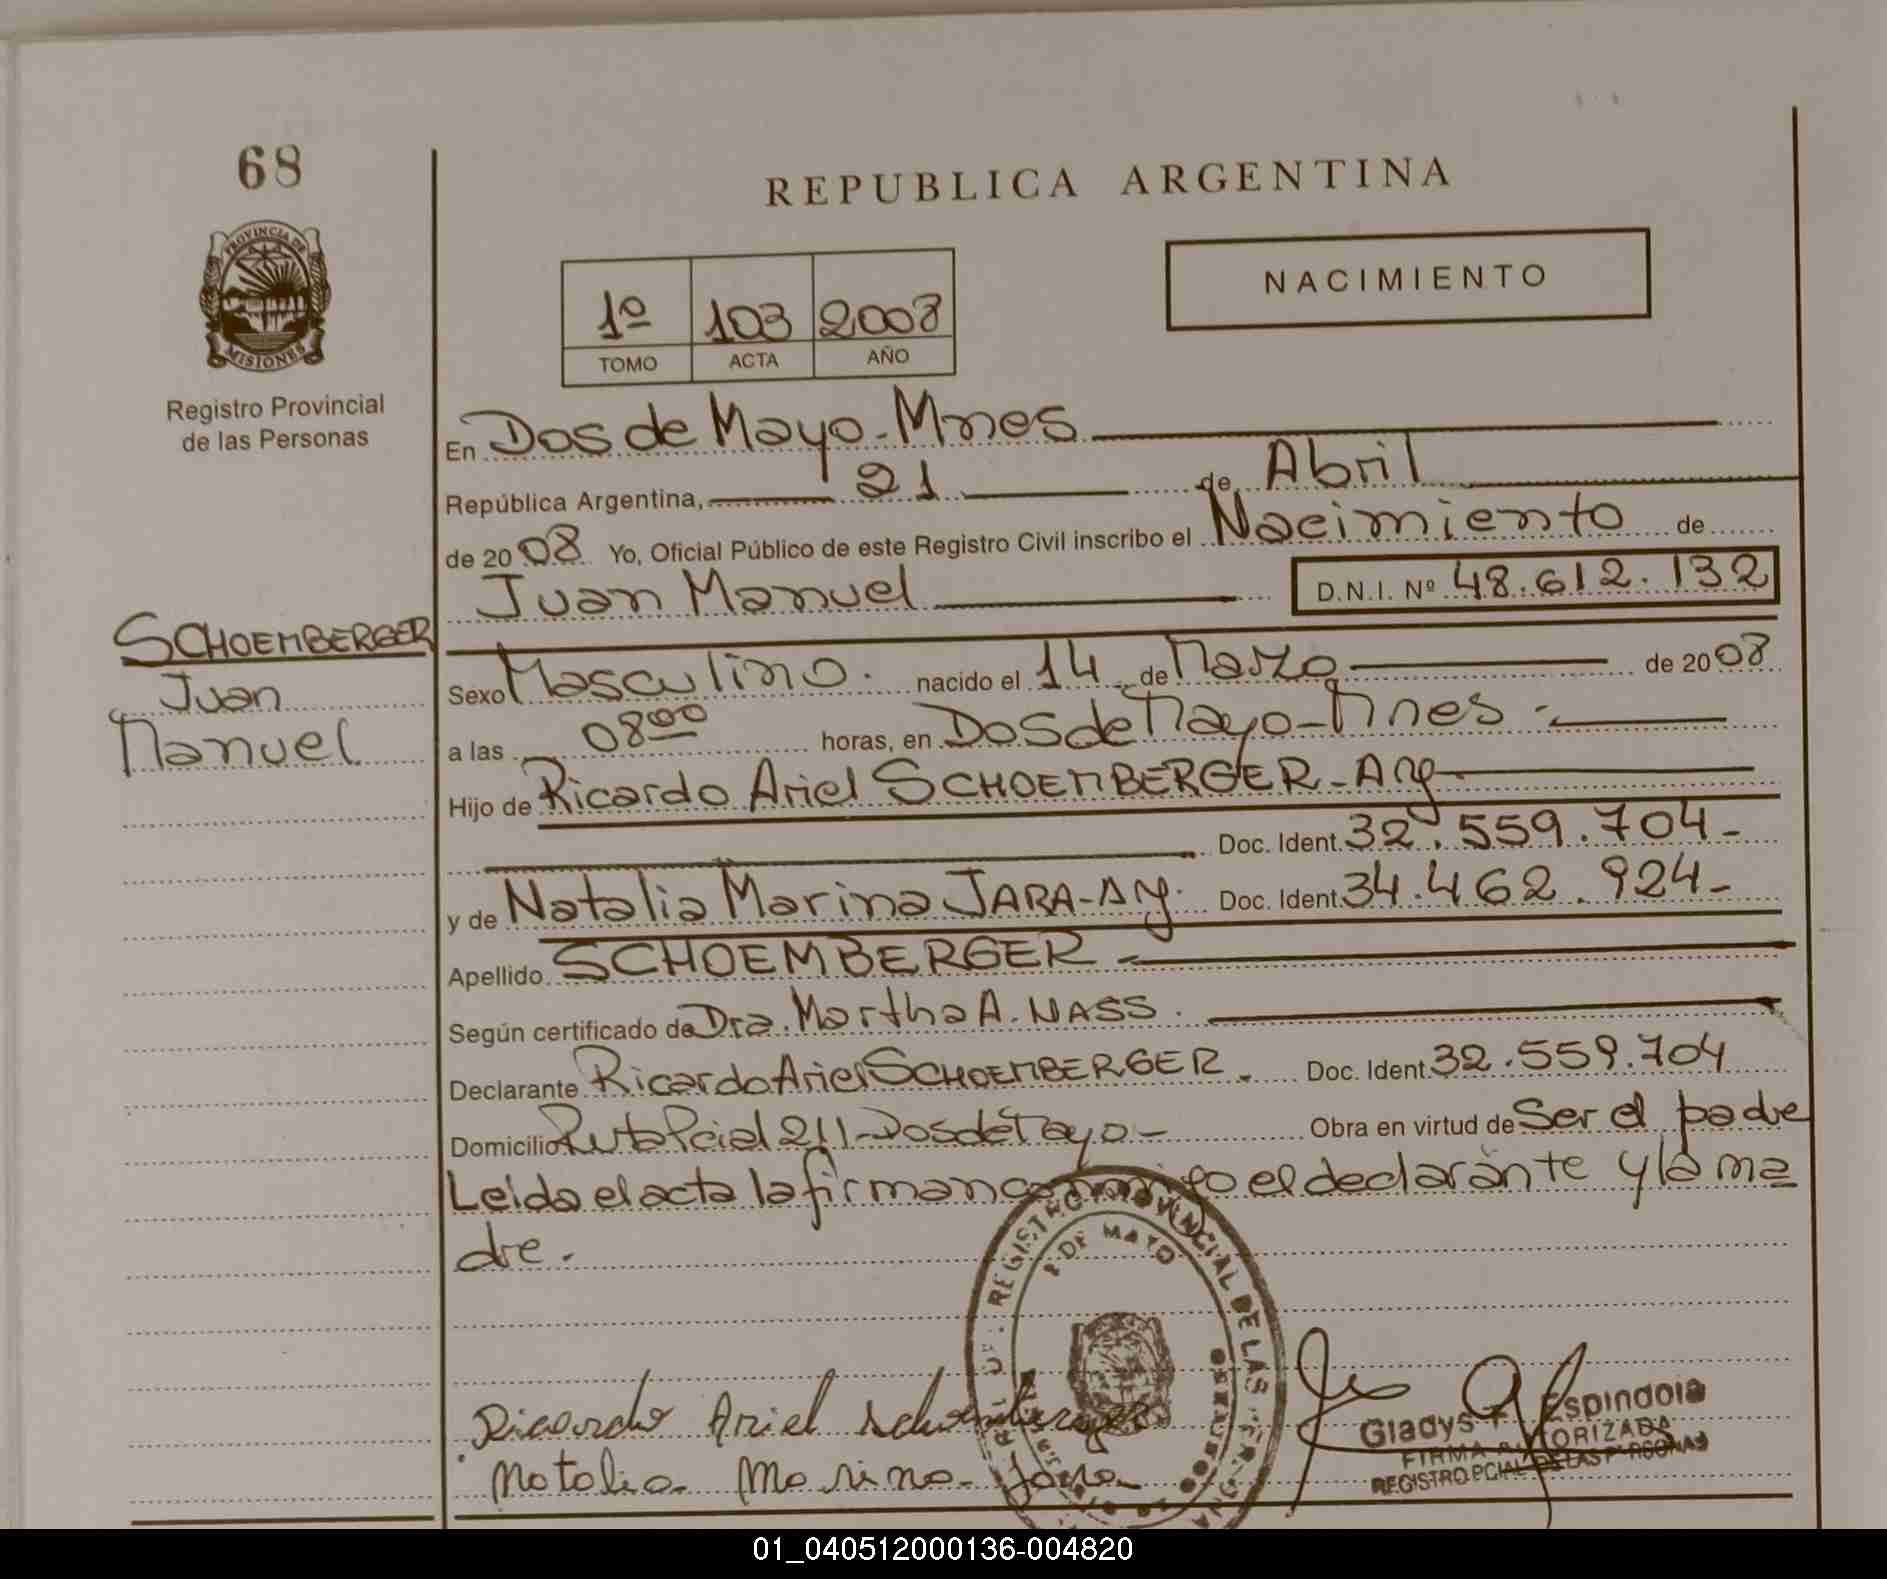 68
REPUBLICA ARGENTINA
PROVINCIA DE
MISIONES
Registro Provincial
de las Personas
1º 103 2008
TOMO ACTA AÑO
NACIMIENTO
En Dos de Mayo - Mnes
República Argentina, 21 de Abril
de 20 08 Yo, Oficial Público de este Registro Civil inscribo el Nacimiento de
Juan Manuel D.N.I. Nº 48.612.132
SCHOEMBERGER
Juan
Manuel
Sexo Masculino. nacido el 14 de Marzo de 20 08
a las 08 00 horas, en Dos de Mayo - Mnes -
Hijo de Ricardo Ariel SCHOEMBERGER - Arg -
Doc. Ident. 32.559.704 -
y de Natalia Marina JARA - Arg. Doc. Ident. 34.462.924 -
Apellido SCHOEMBERGER -
Según certificado de Dra. Martha A. NASS.
Declarante Ricardo Ariel SCHOEMBERGER. Doc. Ident. 32.559.704
Domicilio Ruta Pcial 211 - Dos de Mayo - Obra en virtud de Ser el padre
Leida el acta la firman conmigo el declarante y la ma
dre.
REGISTRO PROVINCIAL DE LAS
2 DE MAYO
Ricardo Ariel Schoemberger
Natalia Marina Jara
Gladys F. Espindola
FIRMA AUTORIZADA
REGISTRO PCIAL DE LAS PERSONAS
01_040512000136-004820